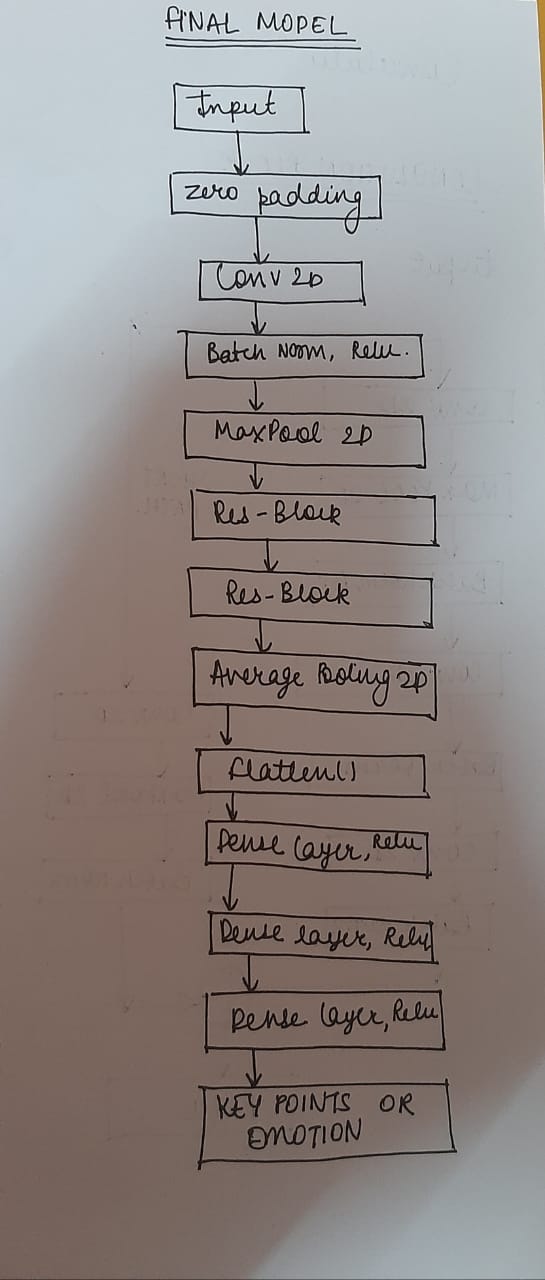 FINAL MODEL
Input
Zero padding
Conv 2D
Batch Norm, Relu.
MaxPool 2D
Res-Block
Res-Block
Average Pooling 2D
flatten()
Dense layer, Relu
Dense layer, Relu
Dense layer, Relu
KEY POINTS OR
EMOTION